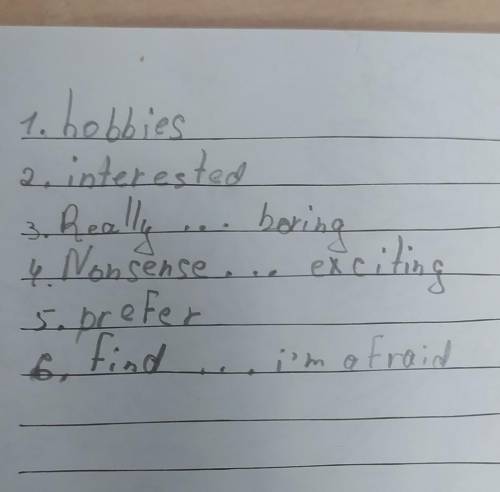 1. hobbies
2. interested
3. Really ... boring
4. Nonsense ... exciting
5. prefer
6. find ... i'm afraid